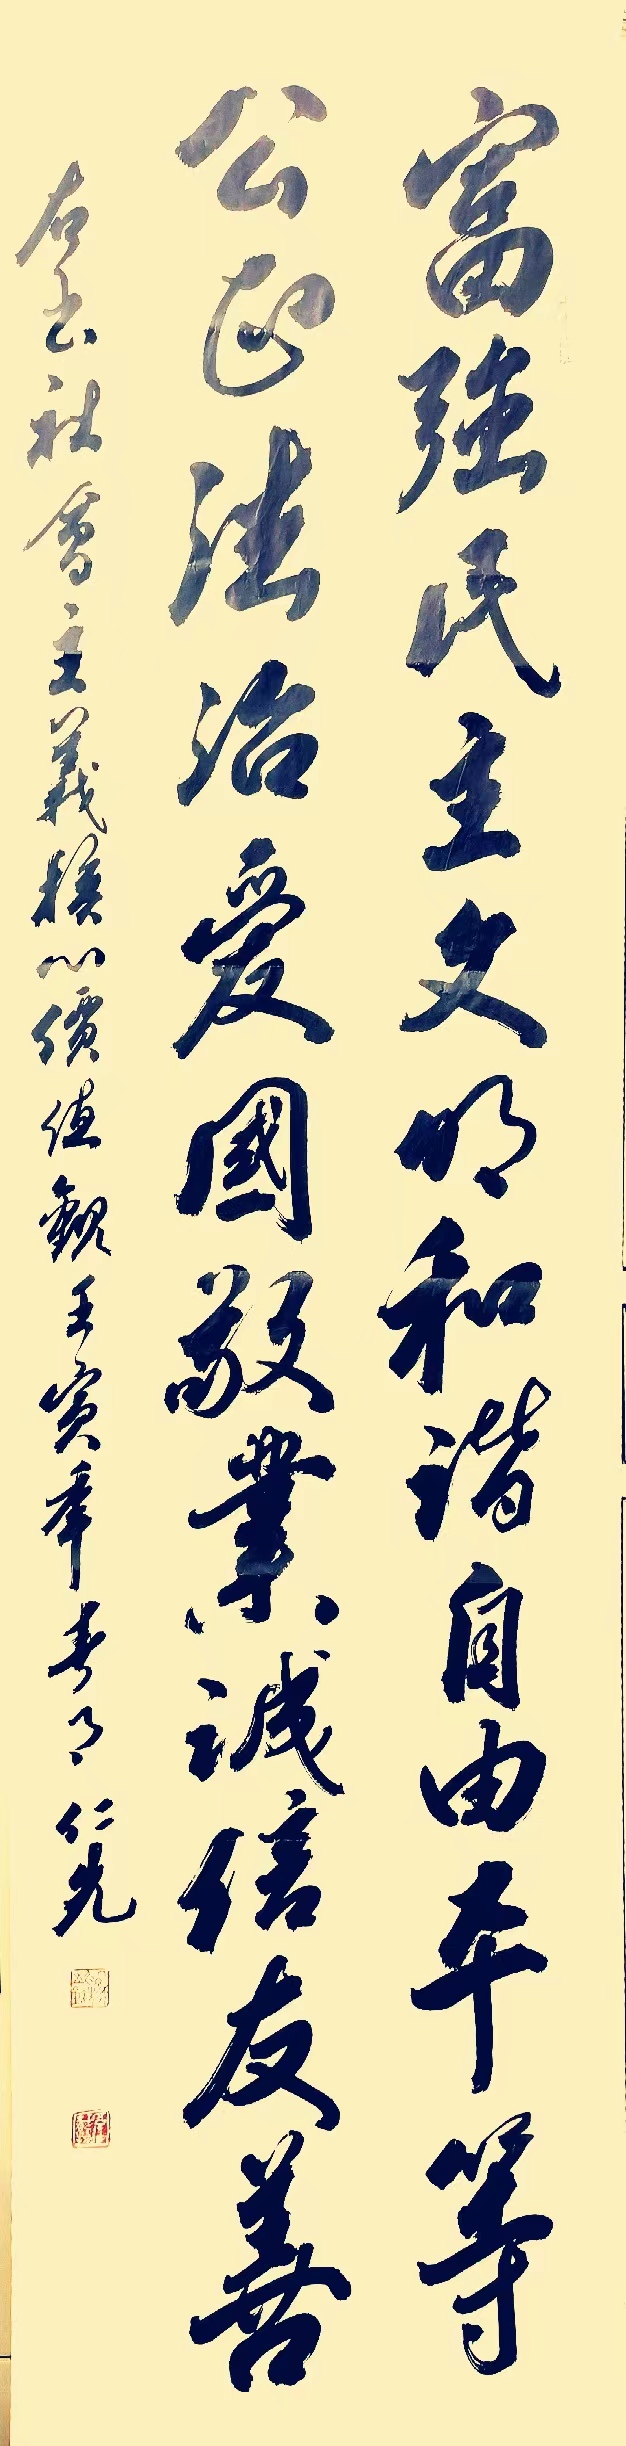 富強民主文明和諧自由平等
公正法治愛國敬業誠信友善
右書社會主義核心價值觀壬寅年春月仁先